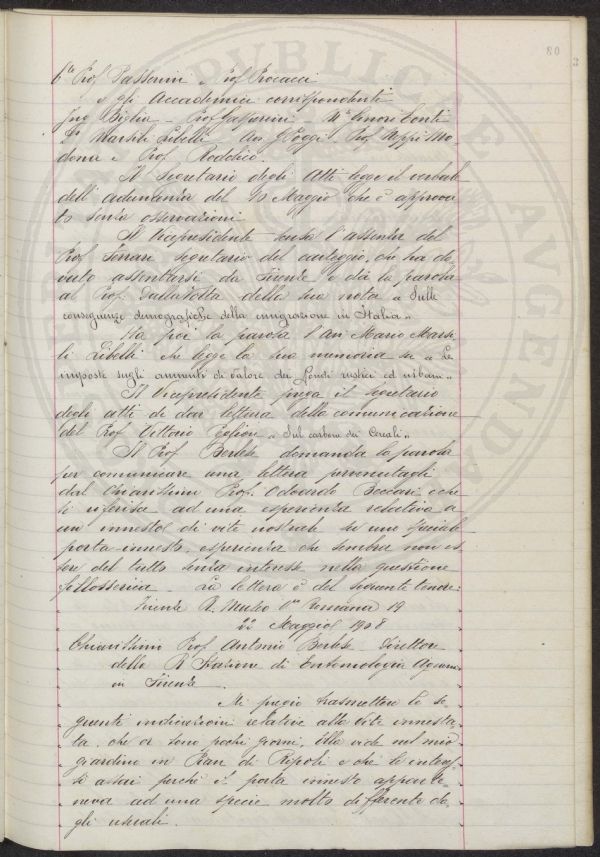 80
2
Prof Passerini e Prof Procacci
e gli Accademici corrispondenti
Ing Biglia – Prof Gasperini – Ginori Conti
Dr Marsili Libelli – Avv G Poggi – Prof Peppi Mo
dona e Prof. Rodolico.
Il Segretario degli Atti legge il verbale
dell'adunanza del 10 Maggio che è approva
to senza osservazioni
Il Vicepresidente scusa l'assenza del
Prof. Ferrari segretario del carteggio, che ha do
vuto assentarsi da Firenze e dà la parola
al Prof. Dalla Volta della sua nota "Sulle
conseguenze demografiche della emigrazione in Italia"
Ha poi la parola l'Avv Mario Marsi
li Libelli che legge la sua memoria su "Le
imposte sugli aumenti di valore dei fondi rustici ed urbani"
Il Vicepresidente prega il Segretario
degli atti di dar lettura della comunicazione
del Prof Vittorio Peglion "Sul carbone dei Cereali"
Il Prof Berlese domanda la parola
per comunicare una lettera pervenutagli
dal Chiarissimo Prof. Odoardo Beccari e che
si riferisce ad una esperienza relativa a
un innesto di vite nostrale su uno speciale
porta-innesto, esperienza che sembra non es
sere del tutto senza interesse nella questione
fillosserica – La lettera è del seguente tenore:
Firenze R. Museo Via Romana 19
22 Maggio 1908
Chiarissimo Prof Antonio Berlese Direttore
della R Stazione di Entomologia Agraria
in Firenze
Mi pregio trasmettere le se
guenti indicazioni relative alla vite innesta
ta, che or sono pochi giorni, Ella vide nel mio
giardino in Pian di Ripoli e che le interes
sò assai perchè il porta innesto apparte
neva ad una specie molto differente da
gli usuali.